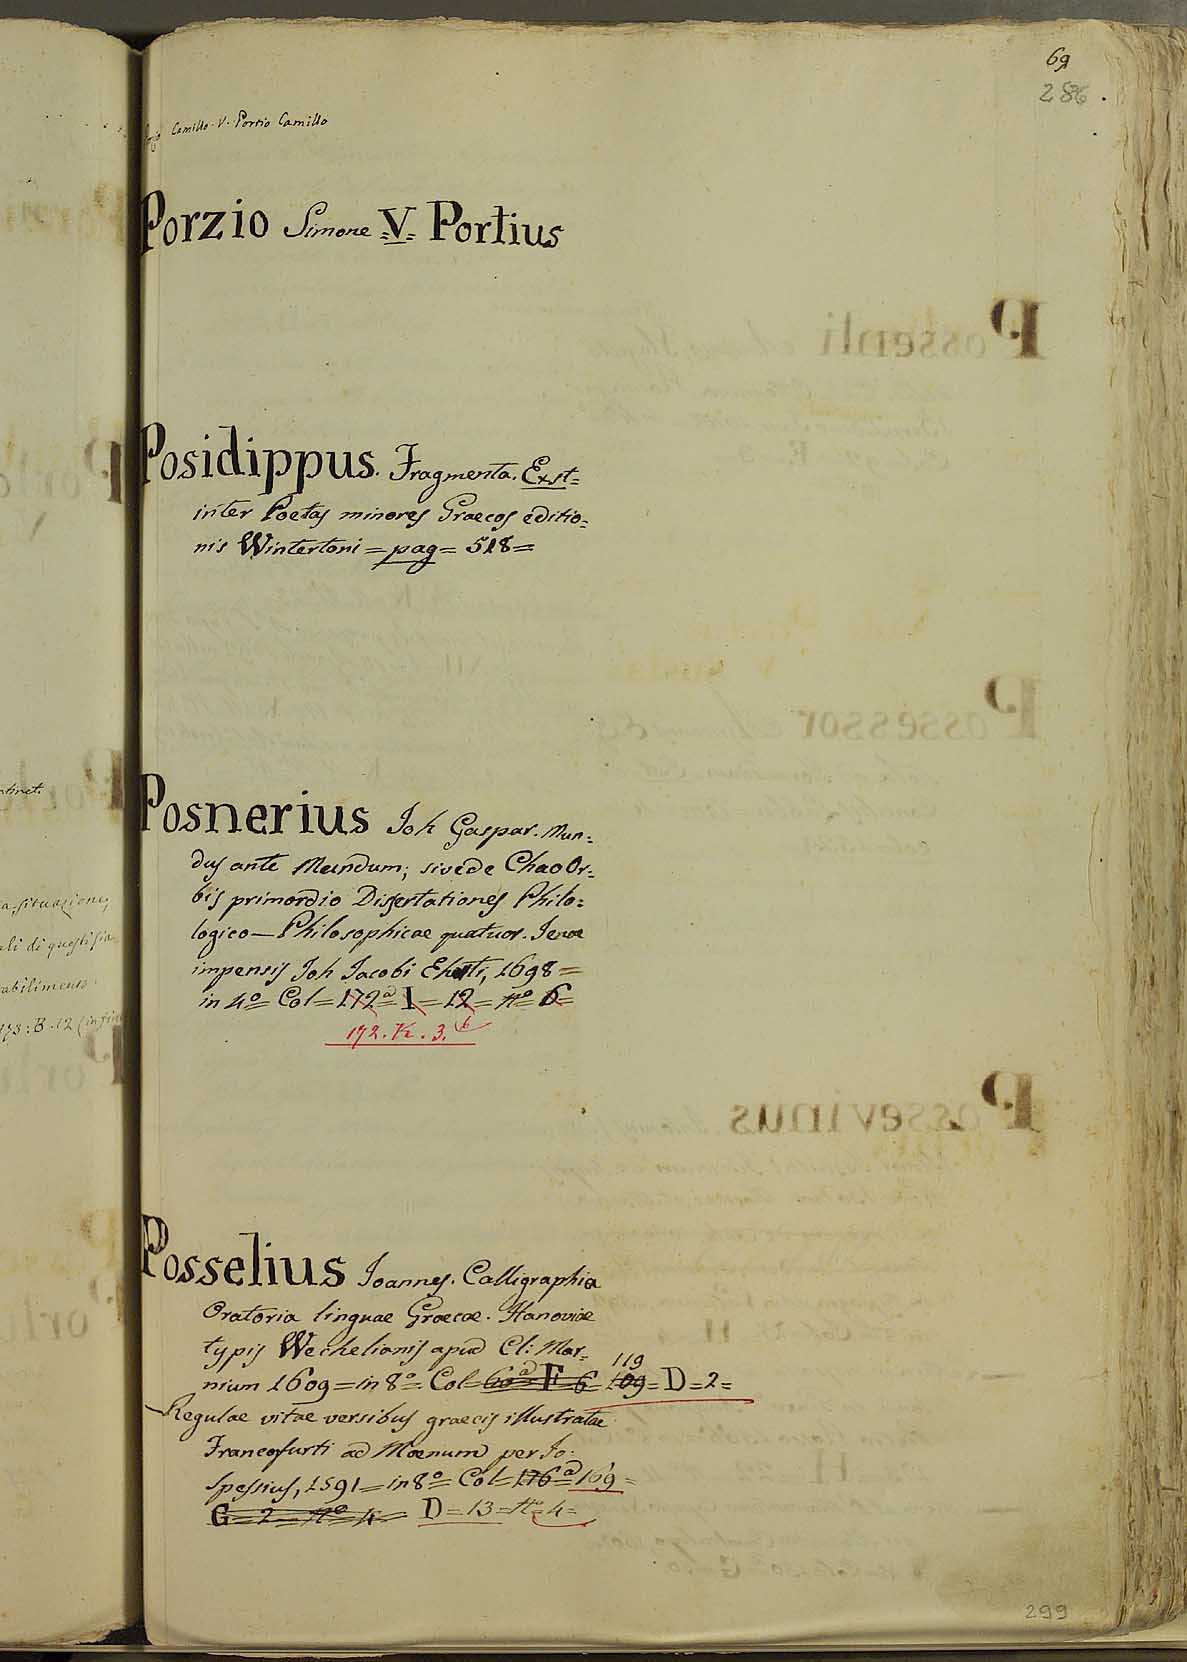 69
286.
Camillo. V. Portio Camillo
Porzio Simone =V= Portius
Posidippus. Fragmenta. Exst=
inter Poetas minores Graecos editio=
nis Wintertoni = pag = 518 =
Posnerius Joh Gaspar. Mun=
dus ante Mundum; sive de Chao Or=
bis primordio Dissertationes Philo=
logico — Philosophicae quatuor. Jenae
impensis Joh Jacobi Ehrti, 1698 =
in 4º = Col = 172ª I = 12 = nº 6 =
172. K. 3. 6
Posselius Joannes. Calligraphia
Oratoria linguae Graecae. Hanoviae
typis Wechelianis apud Cl: Mar=
nium 1609 = in 8º = Col = 60ª = F 6 = 109 = D = 2 =
119
Regulae vitae versibus graecis illustratae
Francofurti ad Moenum per Jo:
Spessius, 1591 = in 8º = Col = 176ª = 169 =
G = 2 = nº 4 = D = 13 = nº = 4 =
299
ntinet.
a situazione,
ali di questi
abilimento
173: B. 12 (in fin